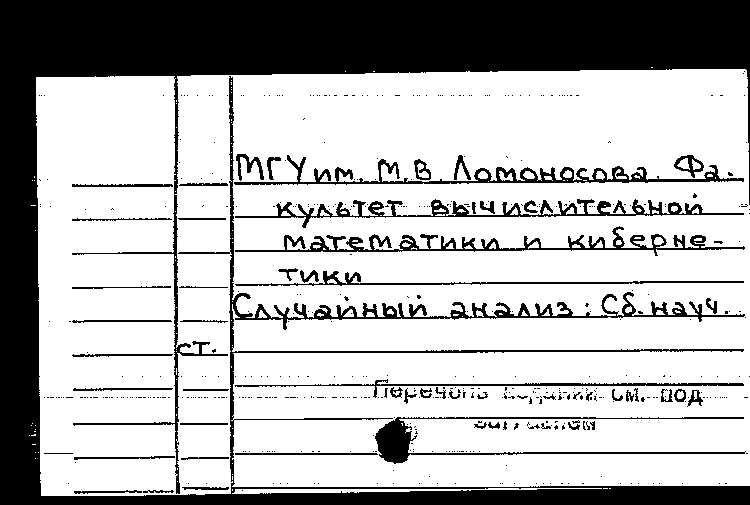 МГУ им. М.В. Ломоносова. Фа-
культет вычислительной
математики и киберне-
тики
Случайный анализ: Сб. науч.
ст.
Перечень изданий см. под
заглавием